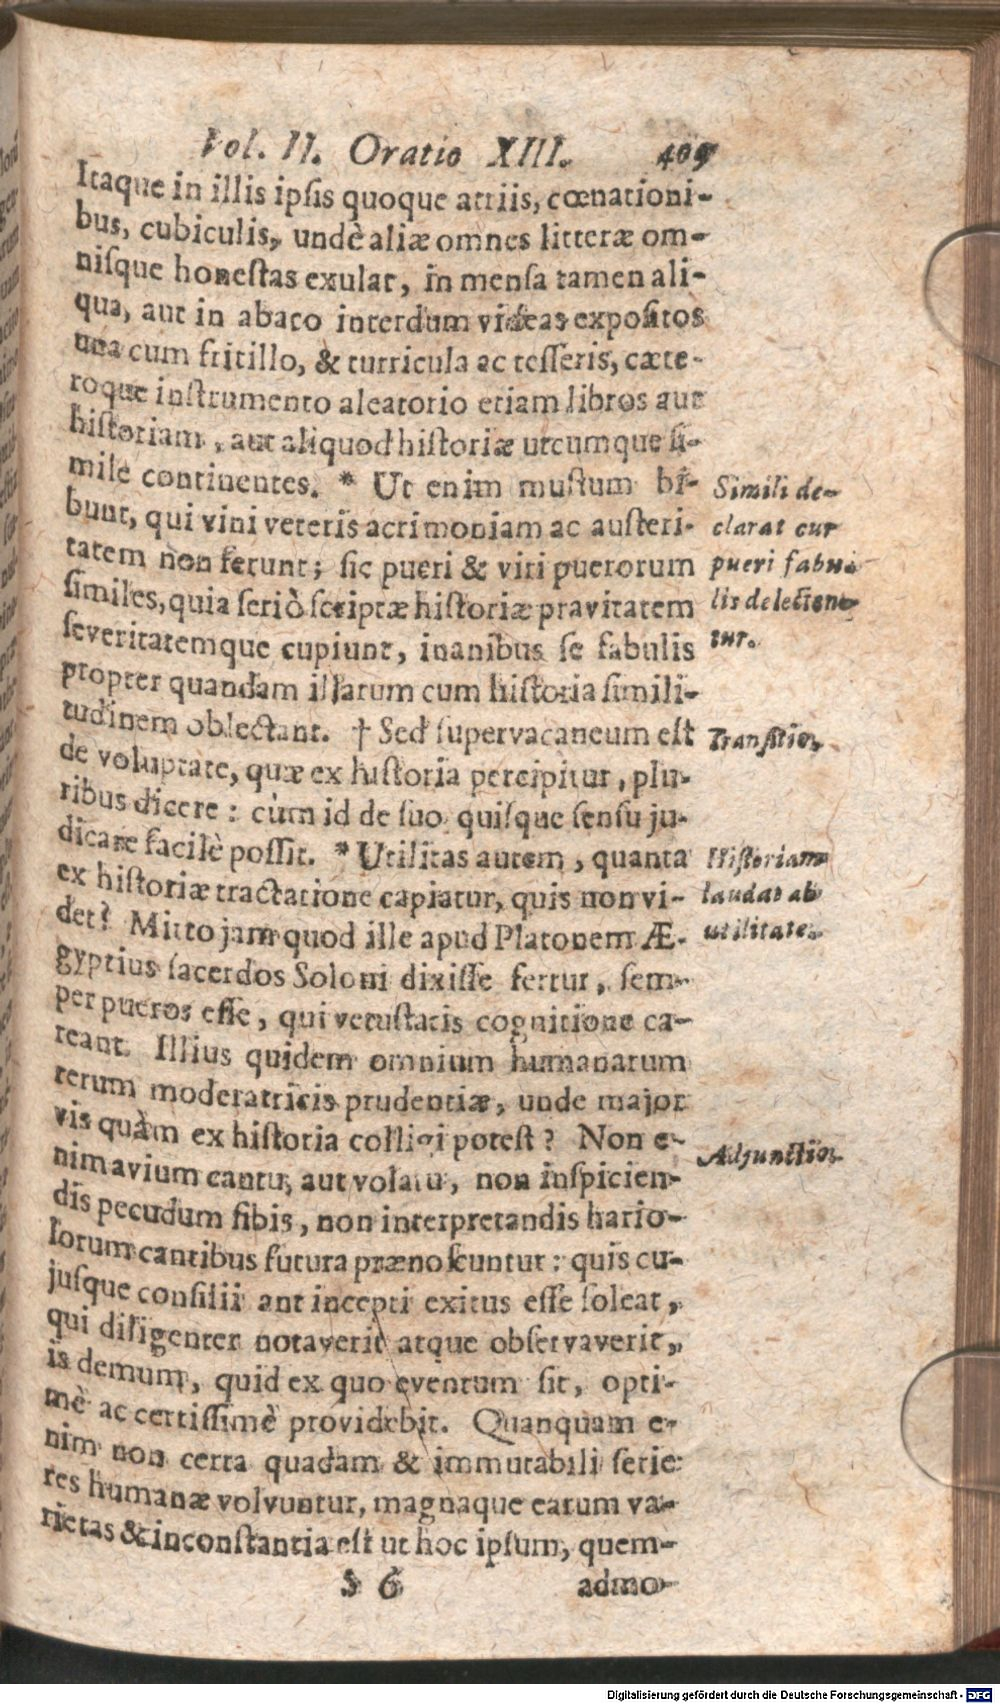 Vol. II. Oratio XIII. 409
Itaque in illis ipſis quoque atriis, cœnationi-
bus, cubiculis, undè aliæ omnes litteræ om-
niſque honeſtas exulat, in menſa tamen ali-
qua, aut in abaco interdum videas expoſitos
una cum fritillo, & turricula ac teſſeris, cæte-
roque inſtrumento aleatorio etiam libros aut
hiſtoriam, aut aliquod hiſtoriæ utcumque ſi-
mile continentes. * Ut enim muſtum bi-
bunt, qui vini veteris acrimoniam ac auſteri-
tatem non ferunt; ſic pueri & viri puerorum
ſimiles, quia ſeriò ſcriptæ hiſtoriæ pravitatem
ſeveritatemque cupiunt, inanibus ſe fabulis
propter quandam illarum cum hiſtoria ſimili-
tudinem oblectant. † Sed ſupervacaneum eſt
de voluptate, quæ ex hiſtoria percipitur, plu-
ribus dicere: cùm id de ſuo quiſque ſenſu ju-
dicare facilè poſſit. * Utilitas autem, quanta
ex hiſtoriæ tractatione capiatur, quis non vi-
det? Mitto jam quod ille apud Platonem Æ-
gyptius ſacerdos Soloni dixiſſe fertur, ſem-
per pueros eſſe, qui vetuſtatis cognitione ca-
reant. Illius quidem omnium humanarum
rerum moderatricis prudentiæ, unde major
vis quàm ex hiſtoria colligi poteſt? Non e-
nim avium cantu, aut volatu, non inſpicien-
dis pecudum fibis, non interpretandis hario-
lorum cantibus futura prænoſcuntur: quis cu-
juſque conſilii ant incepti exitus eſſe ſoleat,
qui diligenter notaverit atque obſervaverit,
is demum, quid ex quo eventum ſit, opti-
mè ac certiſſimè providebit. Quanquam e-
nim non certa quadam & immutabili ſerie
res humanæ volvuntur, magnaque earum va-
rietas & inconſtantia eſt ut hoc ipſum, quem-
S 6 admo-
Simili de-
clarat cur
pueri fabu-
lis delectan-
tur.
Tranſitio.
Hiſtoriam
laudat ab
utilitate.
Adjunctio.
Digitalisierung gefördert durch die Deutsche Forschungsgemeinschaft - DFG